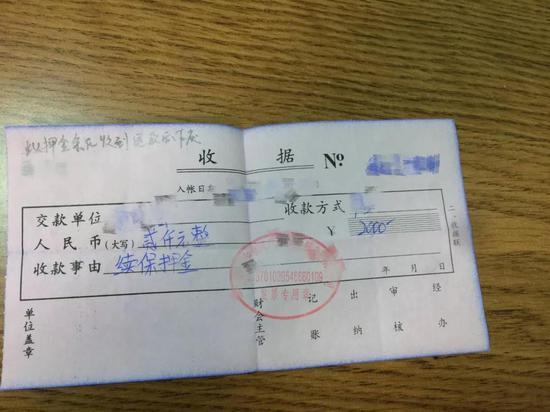 此押金条凡收到退款后作废
收 据 No
入帐日
交款单位 收款方式
人民币(大写) 贰仟元整 ¥ 2000
收款事由 续保押金
年 月 日
二·收据联
票专用章
单位盖章 财会主管 记账 出纳 审核 经办